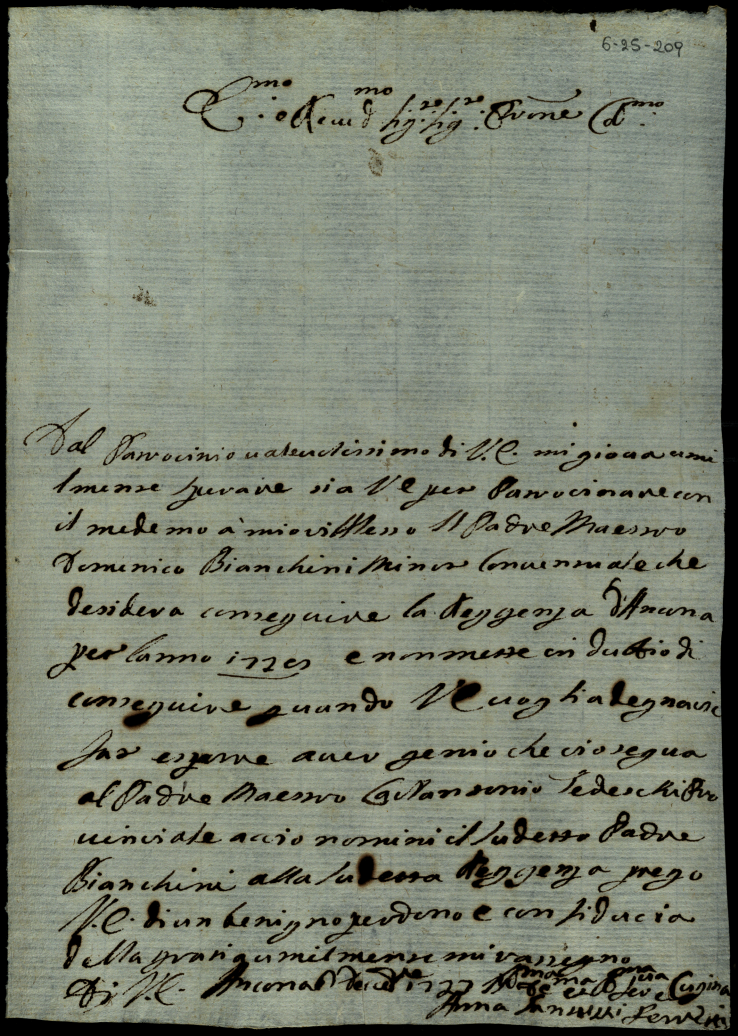 6-25-209
E.mo e Reu.d mo Sig.re Sig.re Prone Col.mo
Dal Patrocinio ualeuolissimo di V.E. mi gioua umi
lmente sperare sia VE per Patrocinare con
il medemo à mio riflesso Il Padre Maestro
Domenico Bianchini Minor Conuentuale che
desidera conseguire la Reggenza d'Ancona
per lanno e non mette in dubbio di
conseguire quando VE uoglia degnarsi
far esporre auer genio che cio segua
al Padre Maestro Tedeschi Pro
uinciale accio nomini il sudetto Padre
Bianchini alla sudetta Reggenza prego
V.E. di un benigno perdono e con fiducia
della grati umilmente mi rassegno
Di V.E. Ancona Cugina
Anna